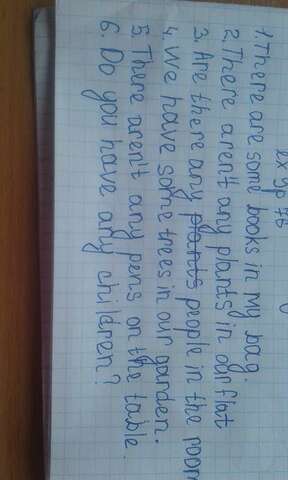 ex 9p 76
1. There are some books in my bag.
2. There aren't any plants in our flat
3. Are there any plants people in the room
4. We have some trees in our garden.
5. There aren't any pens on the table.
6. Do you have any children?